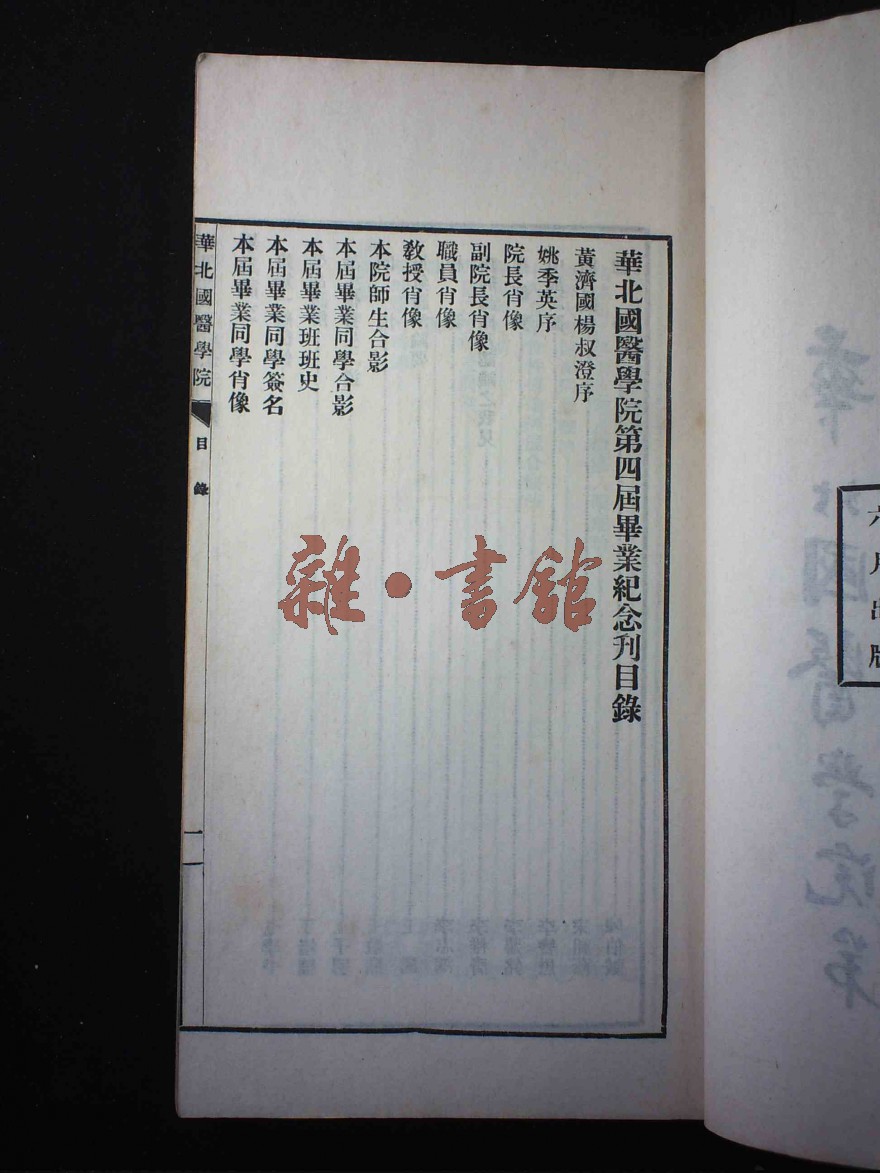 華北國醫學院第四屆畢業紀念刊目錄
黃濟國楊叔澄序
姚季英序
院長肖像
副院長肖像
職員肖像
教授肖像
本院師生合影
本屆畢業同學合影
本屆畢業班班史
本屆畢業同學簽名
本屆畢業同學肖像
華北國醫學院
目錄
一
六月出版
雜·書館